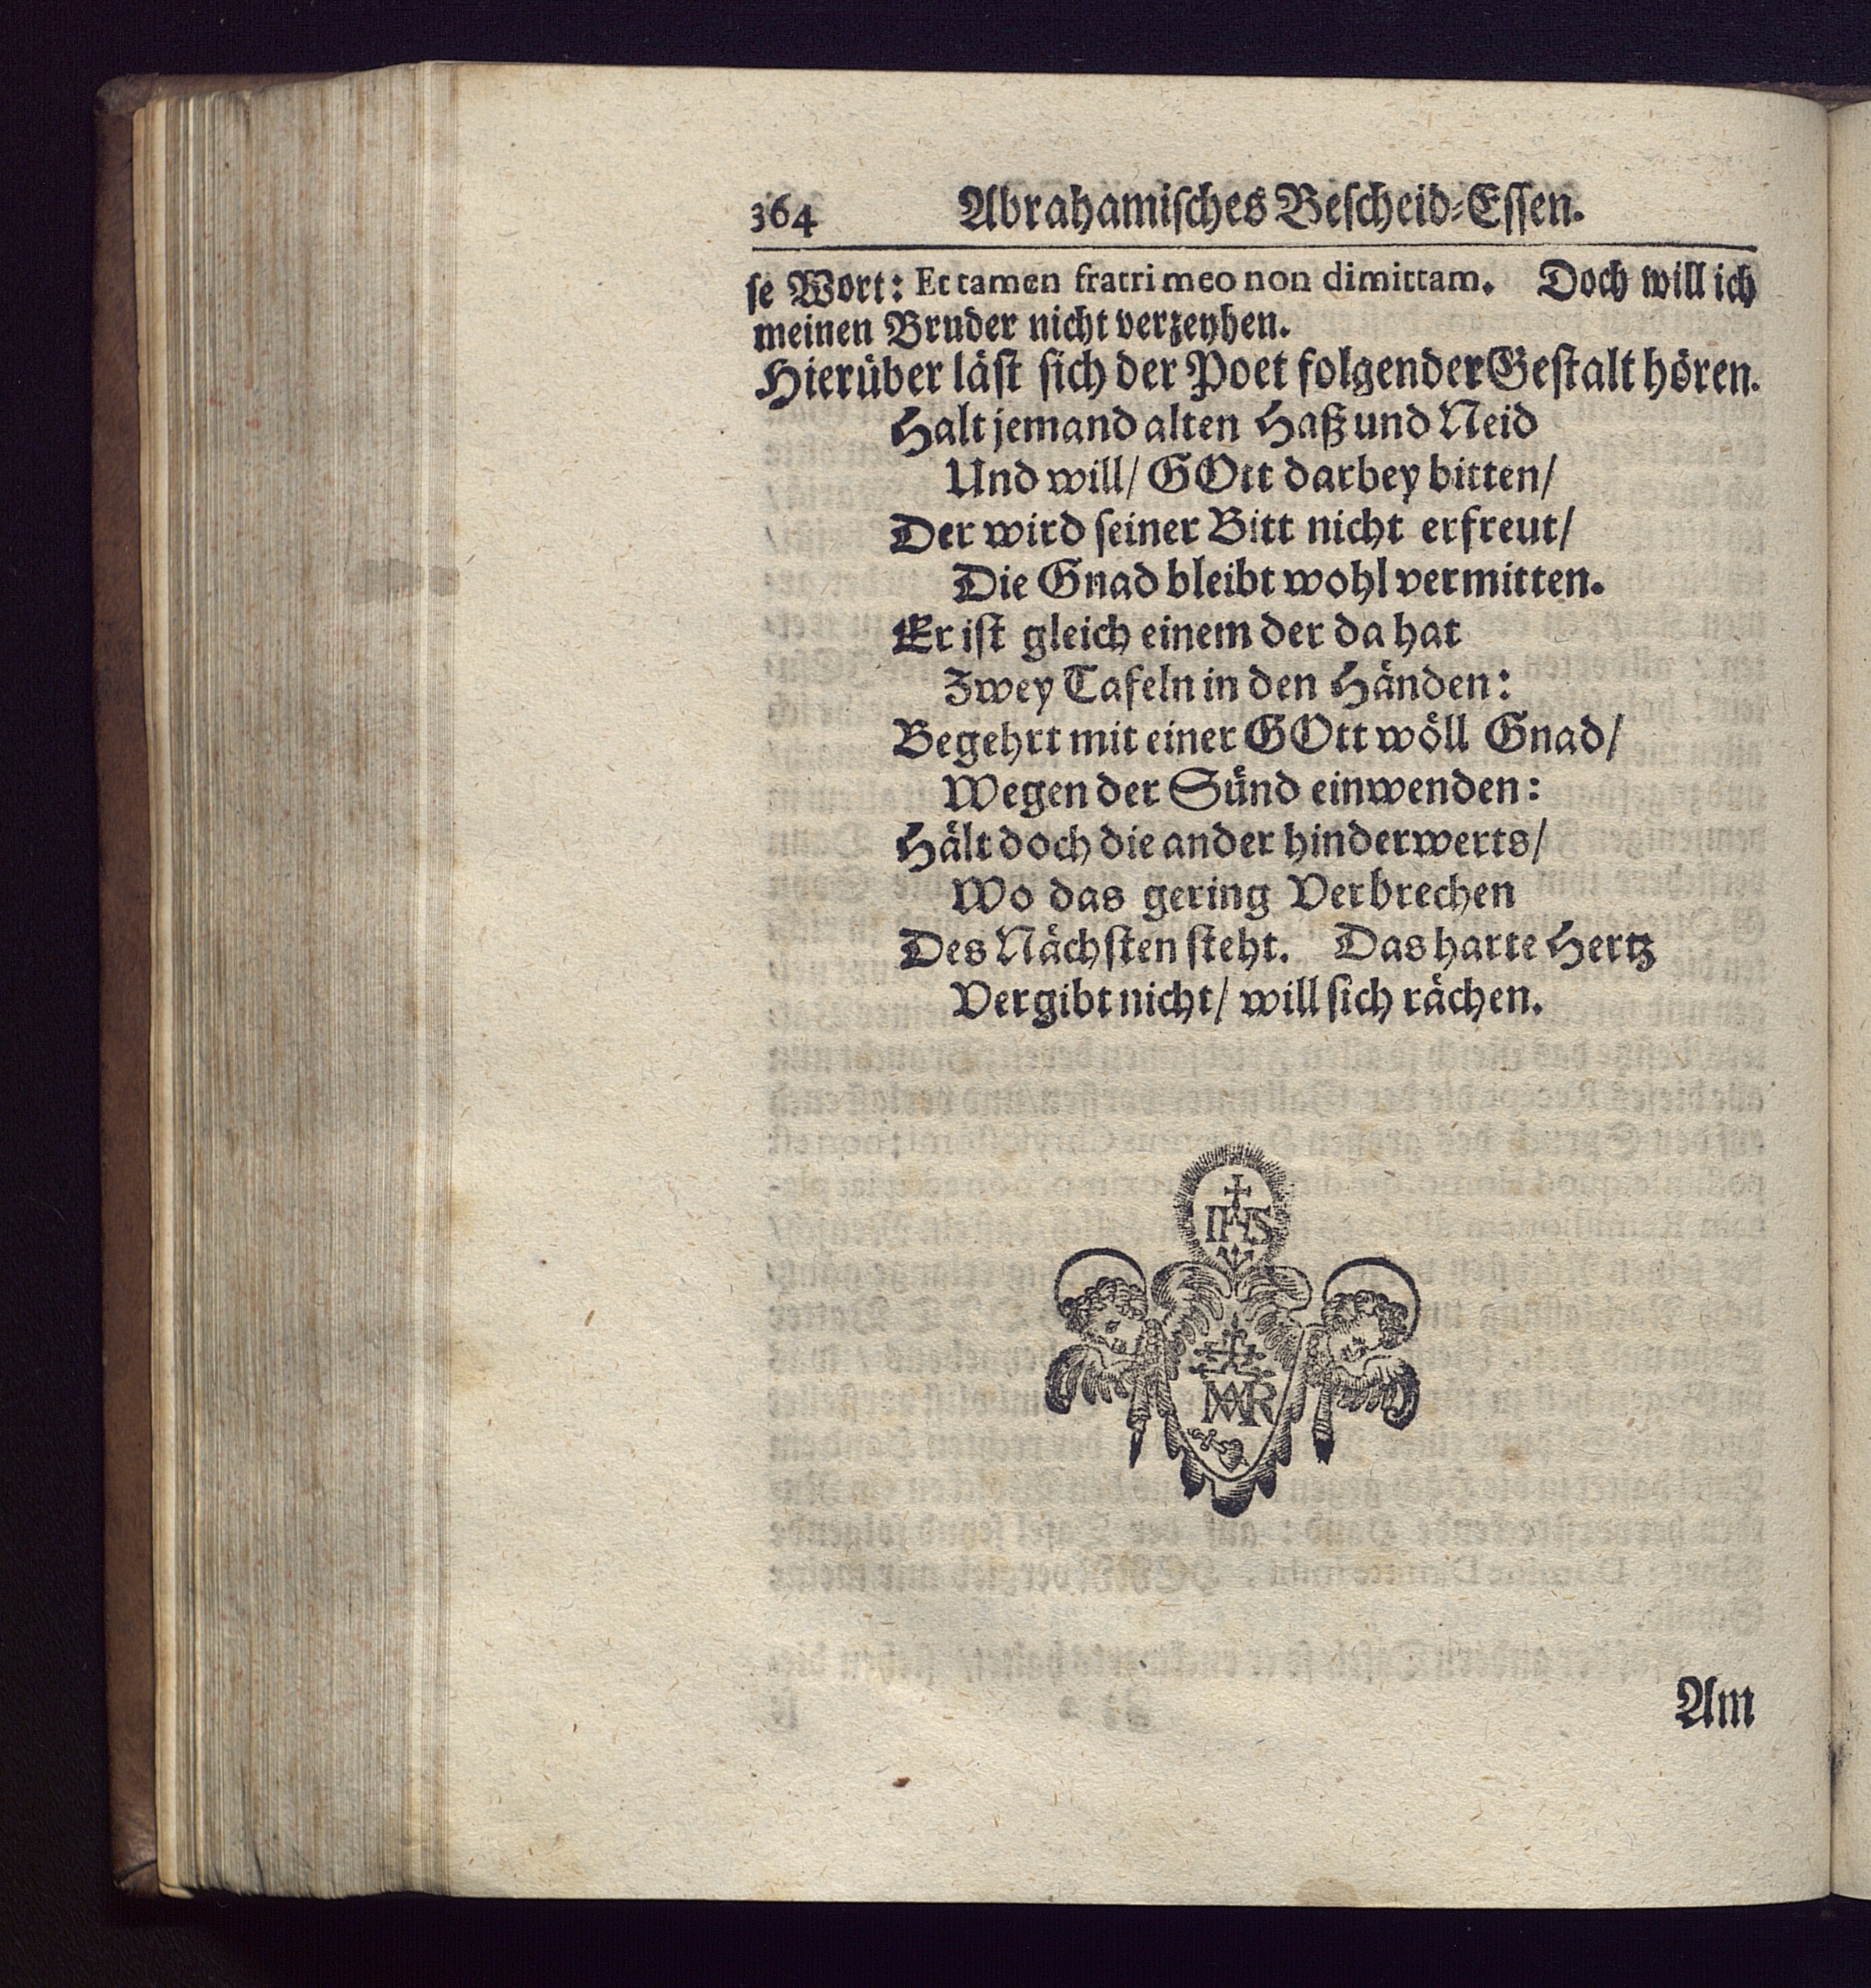 364 Abrahamisches Bescheid-Essen.
se Wort: Et tamen fratri meo non dimittam. Doch will ich
meinen Bruder nicht verzeyhen.
Hierüber läst sich der Poet folgender Gestalt hören.
Halt jemand alten Haß und Neid
Und will/ GOtt darbey bitten/
Der wird seiner Bitt nicht erfreut/
Die Gnad bleibt wohl vermitten.
Er ist gleich einem der da hat
Zwey Tafeln in den Händen:
Begehrt mit einer GOtt wöll Gnad/
Wegen der Sünd einwenden:
Hält doch die ander hinderwerts/
Wo das gering Verbrechen
Des Nächsten steht. Das harte Hertz
Vergibt nicht/ will sich rächen.
IHS
MAR
Am